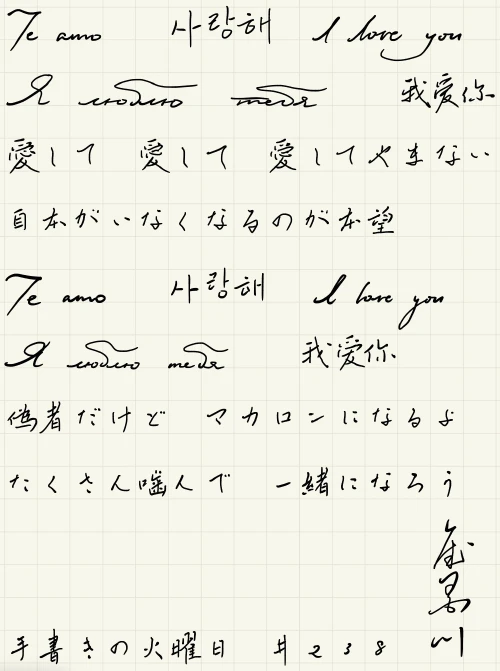 Te amo 사랑해 I love you
Я люблю тебя 我爱你
愛して 愛して 愛してやまない
日本がいなくなるのが本望
Te amo 사랑해 I love you
Я люблю тебя 我爱你
偽者だけど マカロンになるよ
たくさん噛んで 一緒になろう
手書きの火曜日 #238